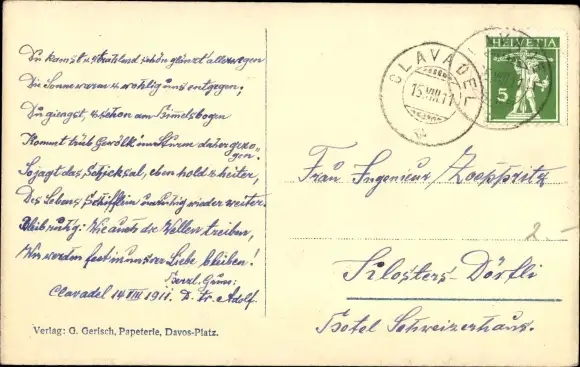 Du kamst u. strahlend schön glänzt allerwegen
Die Sonne warm u. wohlig uns entgegen;
Du giengst, u. schon am Himelsbogen
Kommt trüb Gewölk und Sturm daher gezo-
gen.
So jagt das Schicksal, eben hold u. heiter,
Des Lebens Schifflein unruhig wieder weiter
Bleib ruhig: Wie auch die Wellen treiben,
Wir werden fest in unsrer Liebe bleiben!
Herzl. Gruss:
Clavadel 14 VIII 1911. D. tr. Adolf.
Verlag: G. Gerisch, Papeterie, Davos-Platz.
CLAVADEL
15.VIII.11
CLAVADEL
HELVETIA
5
Frau Ingenieur Zoeppritz
2-
Klosters-Dörfli
Hotel Schweizerhaus.